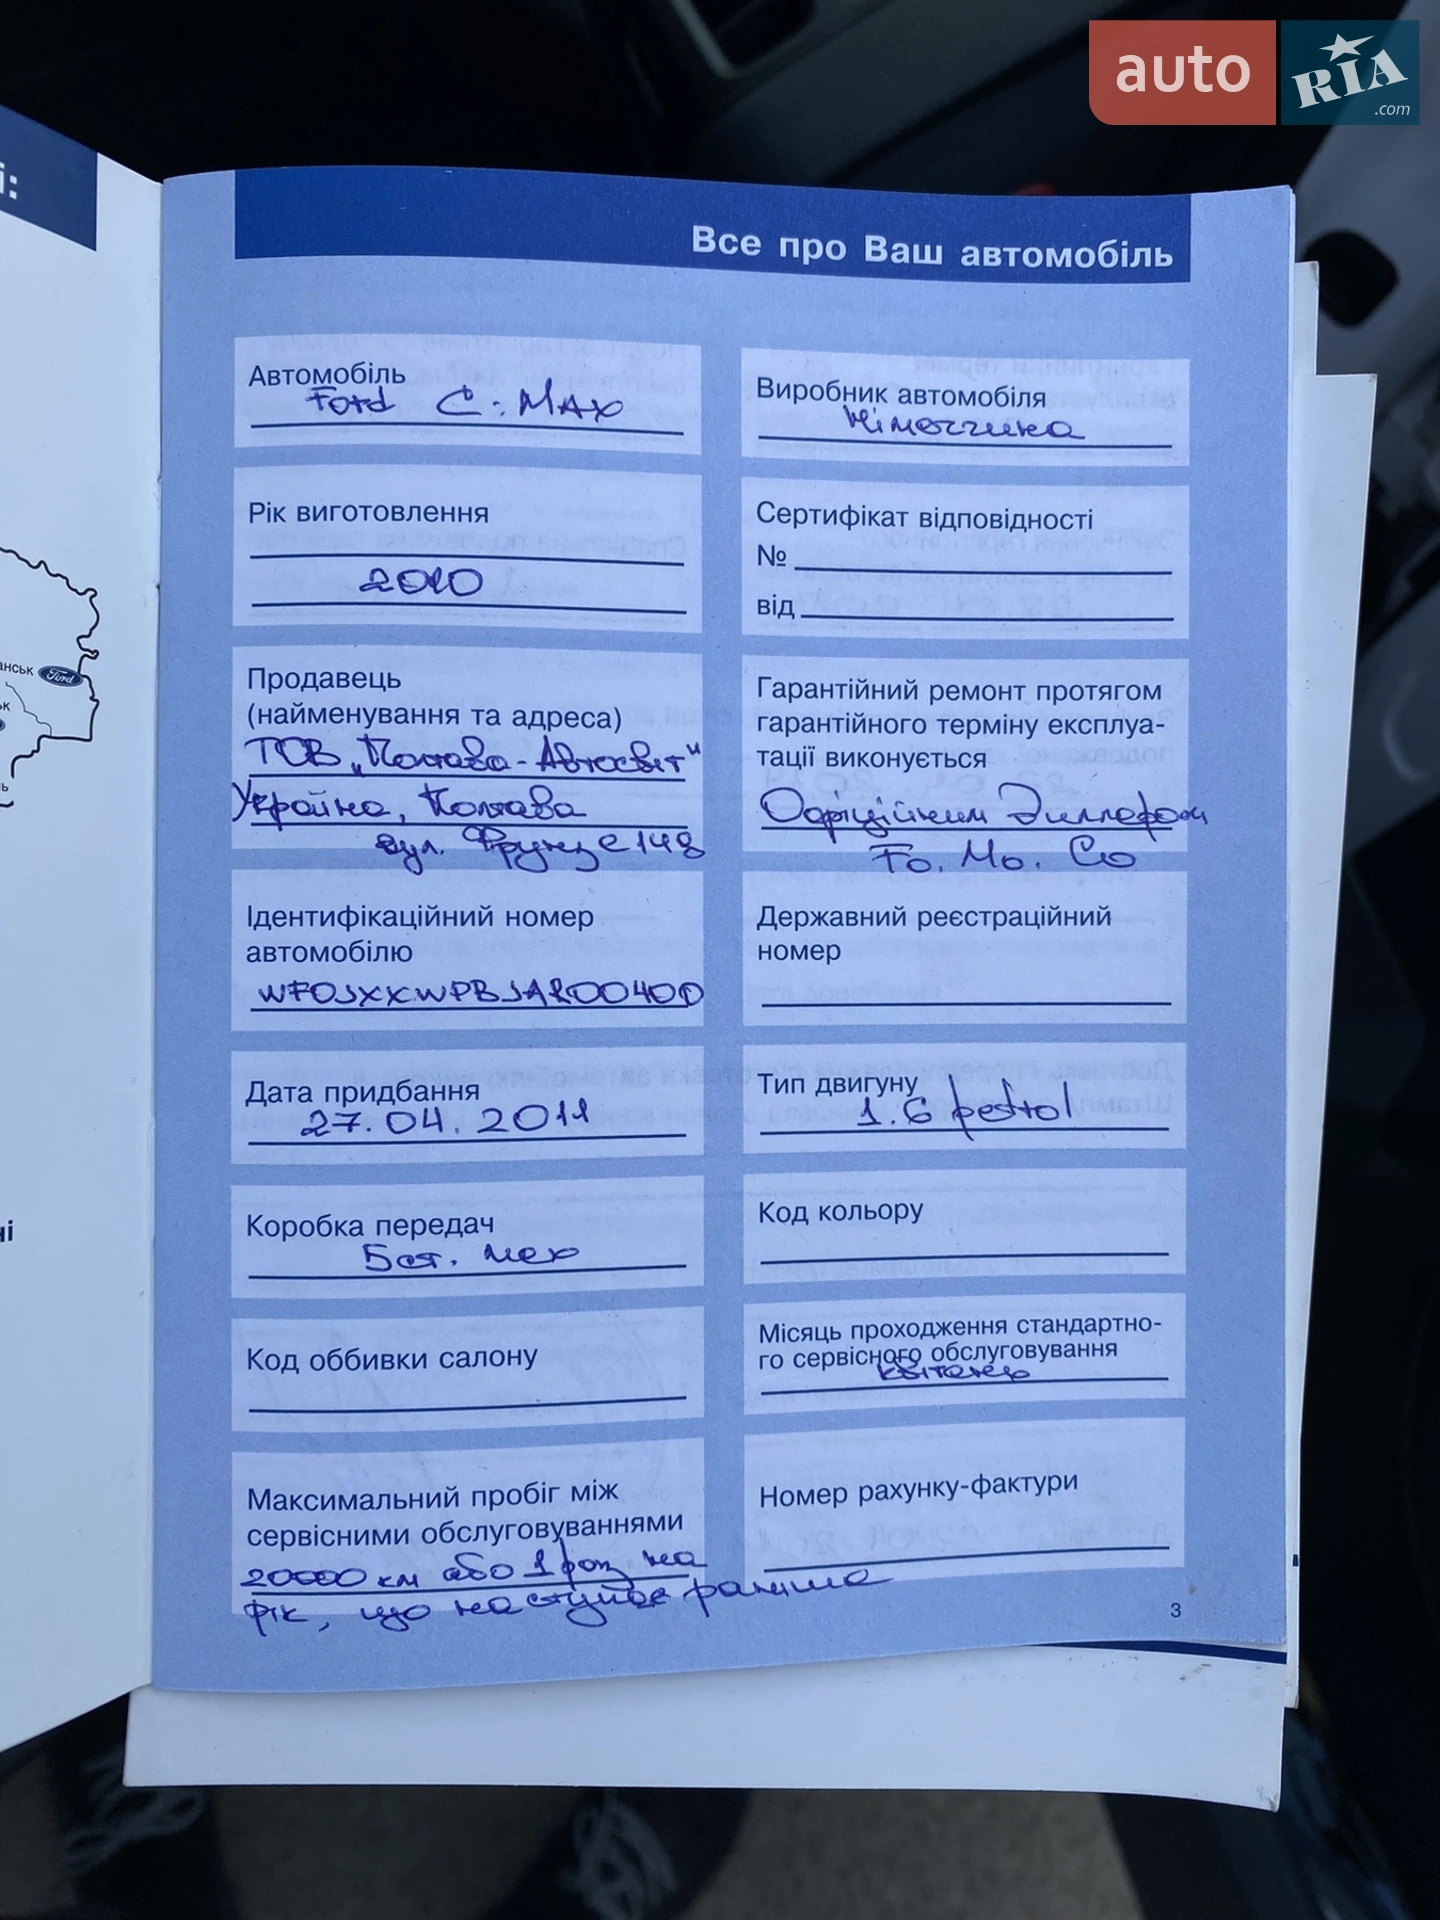 auto RIA.com
і:
Все про Ваш автомобіль
Автомобіль
Ford C-MAX
Виробник автомобіля
Німеччина
Рік виготовлення
2010
Сертифікат відповідності
№
від
Продавець
(найменування та адреса)
ТОВ „Полтава-Автосвіт"
Україна, Полтава
вул. Фрунзе 148
Гарантійний ремонт протягом
гарантійного терміну експлуа-
тації виконується
Офіційним Диллером
Fo. Mo. Co
Ідентифікаційний номер
автомобілю
WF0SXXWPBSAR00400
Державний реєстраційний
номер
Дата придбання
27.04.2011
Тип двигуну
1.6 petrol
Коробка передач
5ст. мех
Код кольору
Код оббивки салону
Місяць проходження стандартно-
го сервісного обслуговування
квітень
Максимальний пробіг між
сервісними обслуговуваннями
20000 км або 1 раз на
рік, що наступає раніше
Номер рахунку-фактури
3
анськ Ford